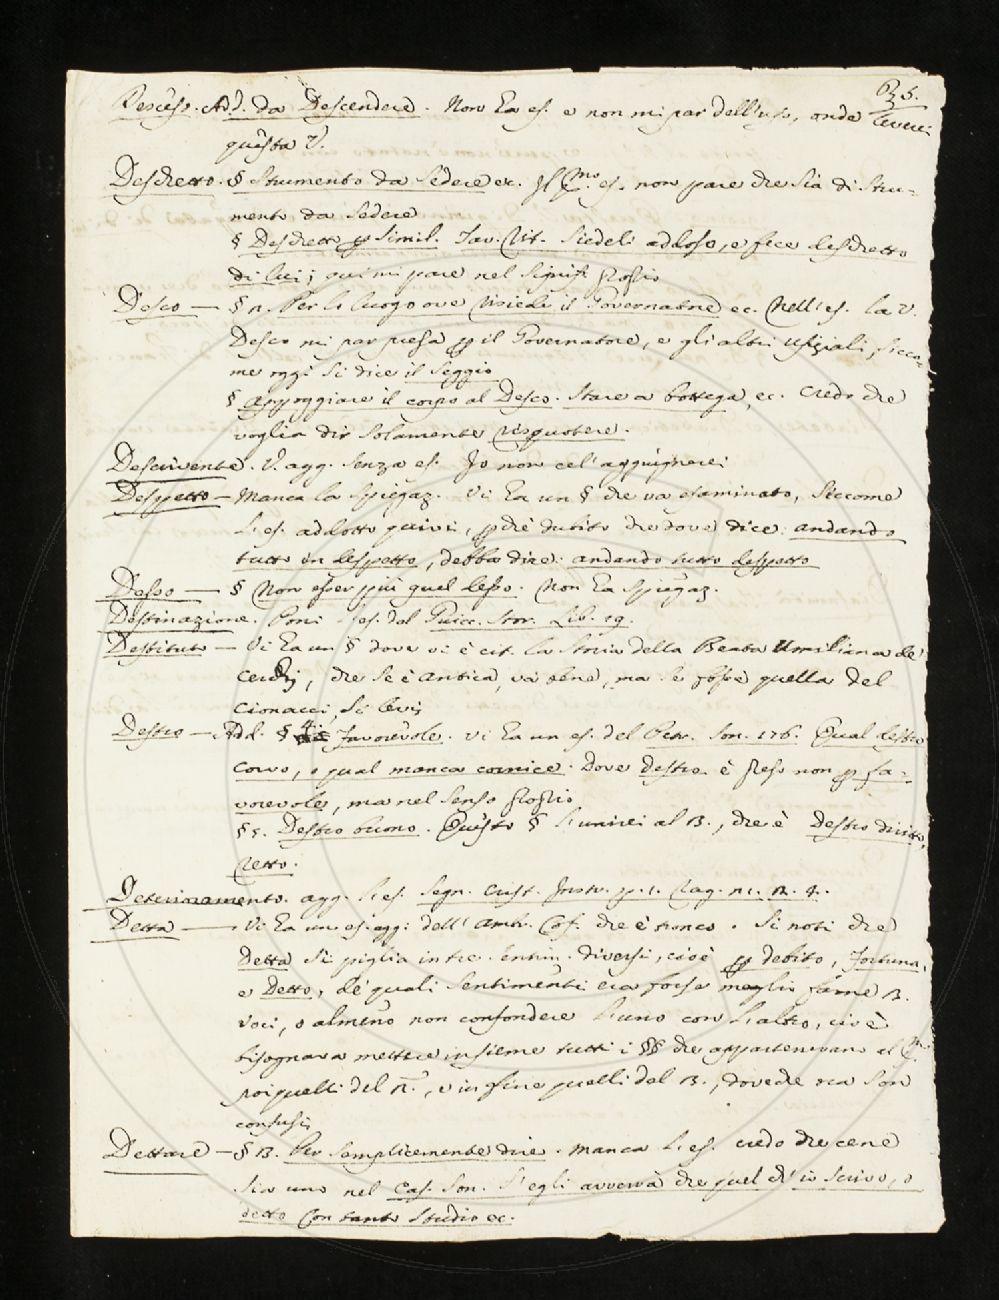 35.
Desceso. Add. da Descendere. Non ha es. e non mi par dell'uso, onde leverei
questa V.
Deschetto. § Strumento da sedere ec. Il p.mo es. non pare che sia di stru-
mento da sedere
§ Deschetto p simil. Tav. Rit. Siedeli addosso, e fece deschetto
di lui; qui mi pare nel signif. proprio
Desco — § n. Per lo luogo ove risiede il Governatore ec. Nell'es. la V.
Desco mi par presa p il Governatore, e gli altri ufiziali, sicco-
me oggi si dice il seggio
§ Appoggiare il corpo al Desco. Stare a bottega, ec. credo che
voglia dir solamente
Descrivente. V. agg. senza es. Io non cel'aggiugnerei
Despetto — Manca la spiegaz. Vi ha un § che va esaminato, siccome
l'es. addotto quivi, pchè dubito che dove dice: andando
tutto in despetto, debba dire: andando tutto despetto
Desso — § Non esser più quel desso. Non ha spiegaz.
Destinazione. Poni l'es. dal Guicc. Stor. Lib. 19.
Destituto — Vi ha un § dove vi è cit. la Storia della Beata Umiliana de'
Cerchj, che se è antica, va bene, ma se fosse quella del
Cionacci, si levi
Destro — Add. § 4. Favorevole. Vi ha un es. del Petr. Son. 176. Qual destro
corvo, o qual manca cornice. Dove destro è preso non p fa-
vorevole, ma nel senso proprio
§ 5. Destro buono. Questo § l'unirei al B., che è destro diritto,
retto.
Deterioramento. agg. l'es. Segn. Crist. Instr. p. 1. Rag. 11. n. 4.
Detta — Vi ha un es. agg. dell'Ambr. Cof. che è tronco. Si noti che
Detta si piglia in tre sentim. diversi, cioè p debito, Fortuna,
e Detto, de' quali sentimenti era forse meglio farne 3.
voci, o almeno non confondere l'uno con l'altro, cioè
bisognava mettere insieme tutti i §§ che appartenevano al p.mo
poi quelli del 2.°, e in fine quelli del 3., dovechè ora son
confusi
Dettare — § B. Per semplicemente dire. Manca l'es. credo che cene
sia uno nel Cas. Son. S'egli avverrà che quel ch'io scrivo, o
detto con tanto studio ec.